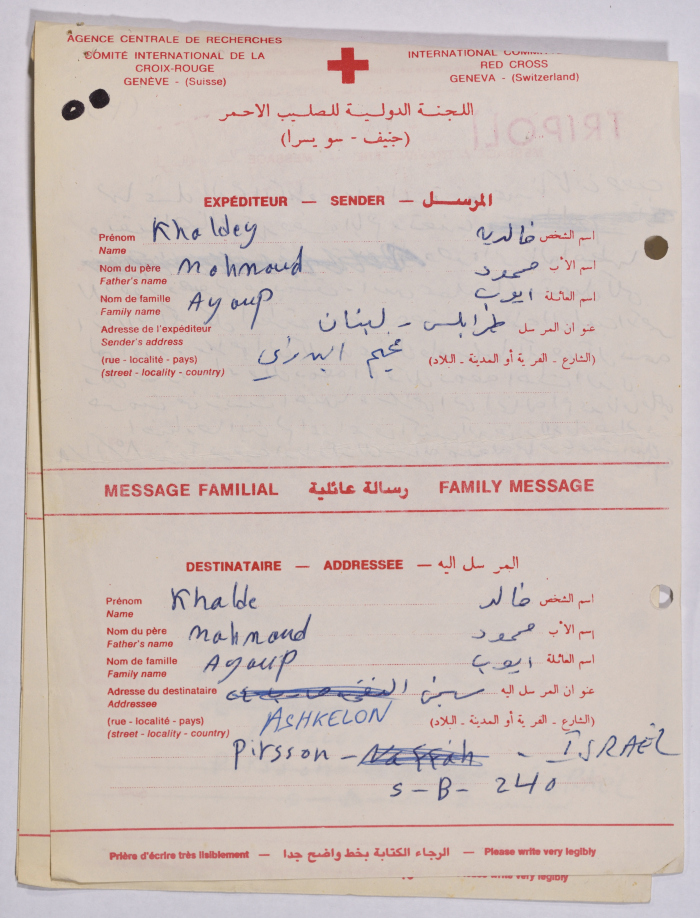 AGENCE CENTRALE DE RECHERCHES
COMITÉ INTERNATIONAL DE LA
CROIX-ROUGE
GENÈVE - (Suisse)
INTERNATIONAL
RED CROSS
GENEVA - (Switzerland)
اللجنة الدولية للصليب الاحمر
(جنيف - سويسرا)
TRIPOLI
EXPÉDITEUR — SENDER — المرسل
Prénom Khaldey خالديه اسم الشخص
Name
Nom du père Mahmoud محمود اسم الأب
Father's name
Nom de famille Ayoup ايوب اسم العائلة
Family name
Adresse de l'expéditeur طرابلس - لبنان عنوان المرسل
Sender's address
(rue - localité - pays) مخيم البداوي (الشارع - القرية أو المدينة - البلاد)
(street - locality - country)
MESSAGE FAMILIAL رسالة عائلية FAMILY MESSAGE
DESTINATAIRE — ADDRESSEE — المرسل اليه
Prénom Khalde خالد اسم الشخص
Name
Nom du père Mahmoud محمود اسم الأب
Father's name
Nom de famille Ayoup ايوب اسم العائلة
Family name
Adresse du destinataire سجن عنوان المرسل اليه
Addressee
(rue - localité - pays) ASHKELON (الشارع - القرية أو المدينة - البلاد)
(street - locality - country)
Pirsson - - ISRAËL
S-B- 240
Prière d'écrire très lisiblement — الرجاء الكتابة بخط واضح جدا — Please write very legibly
Please write very legibly